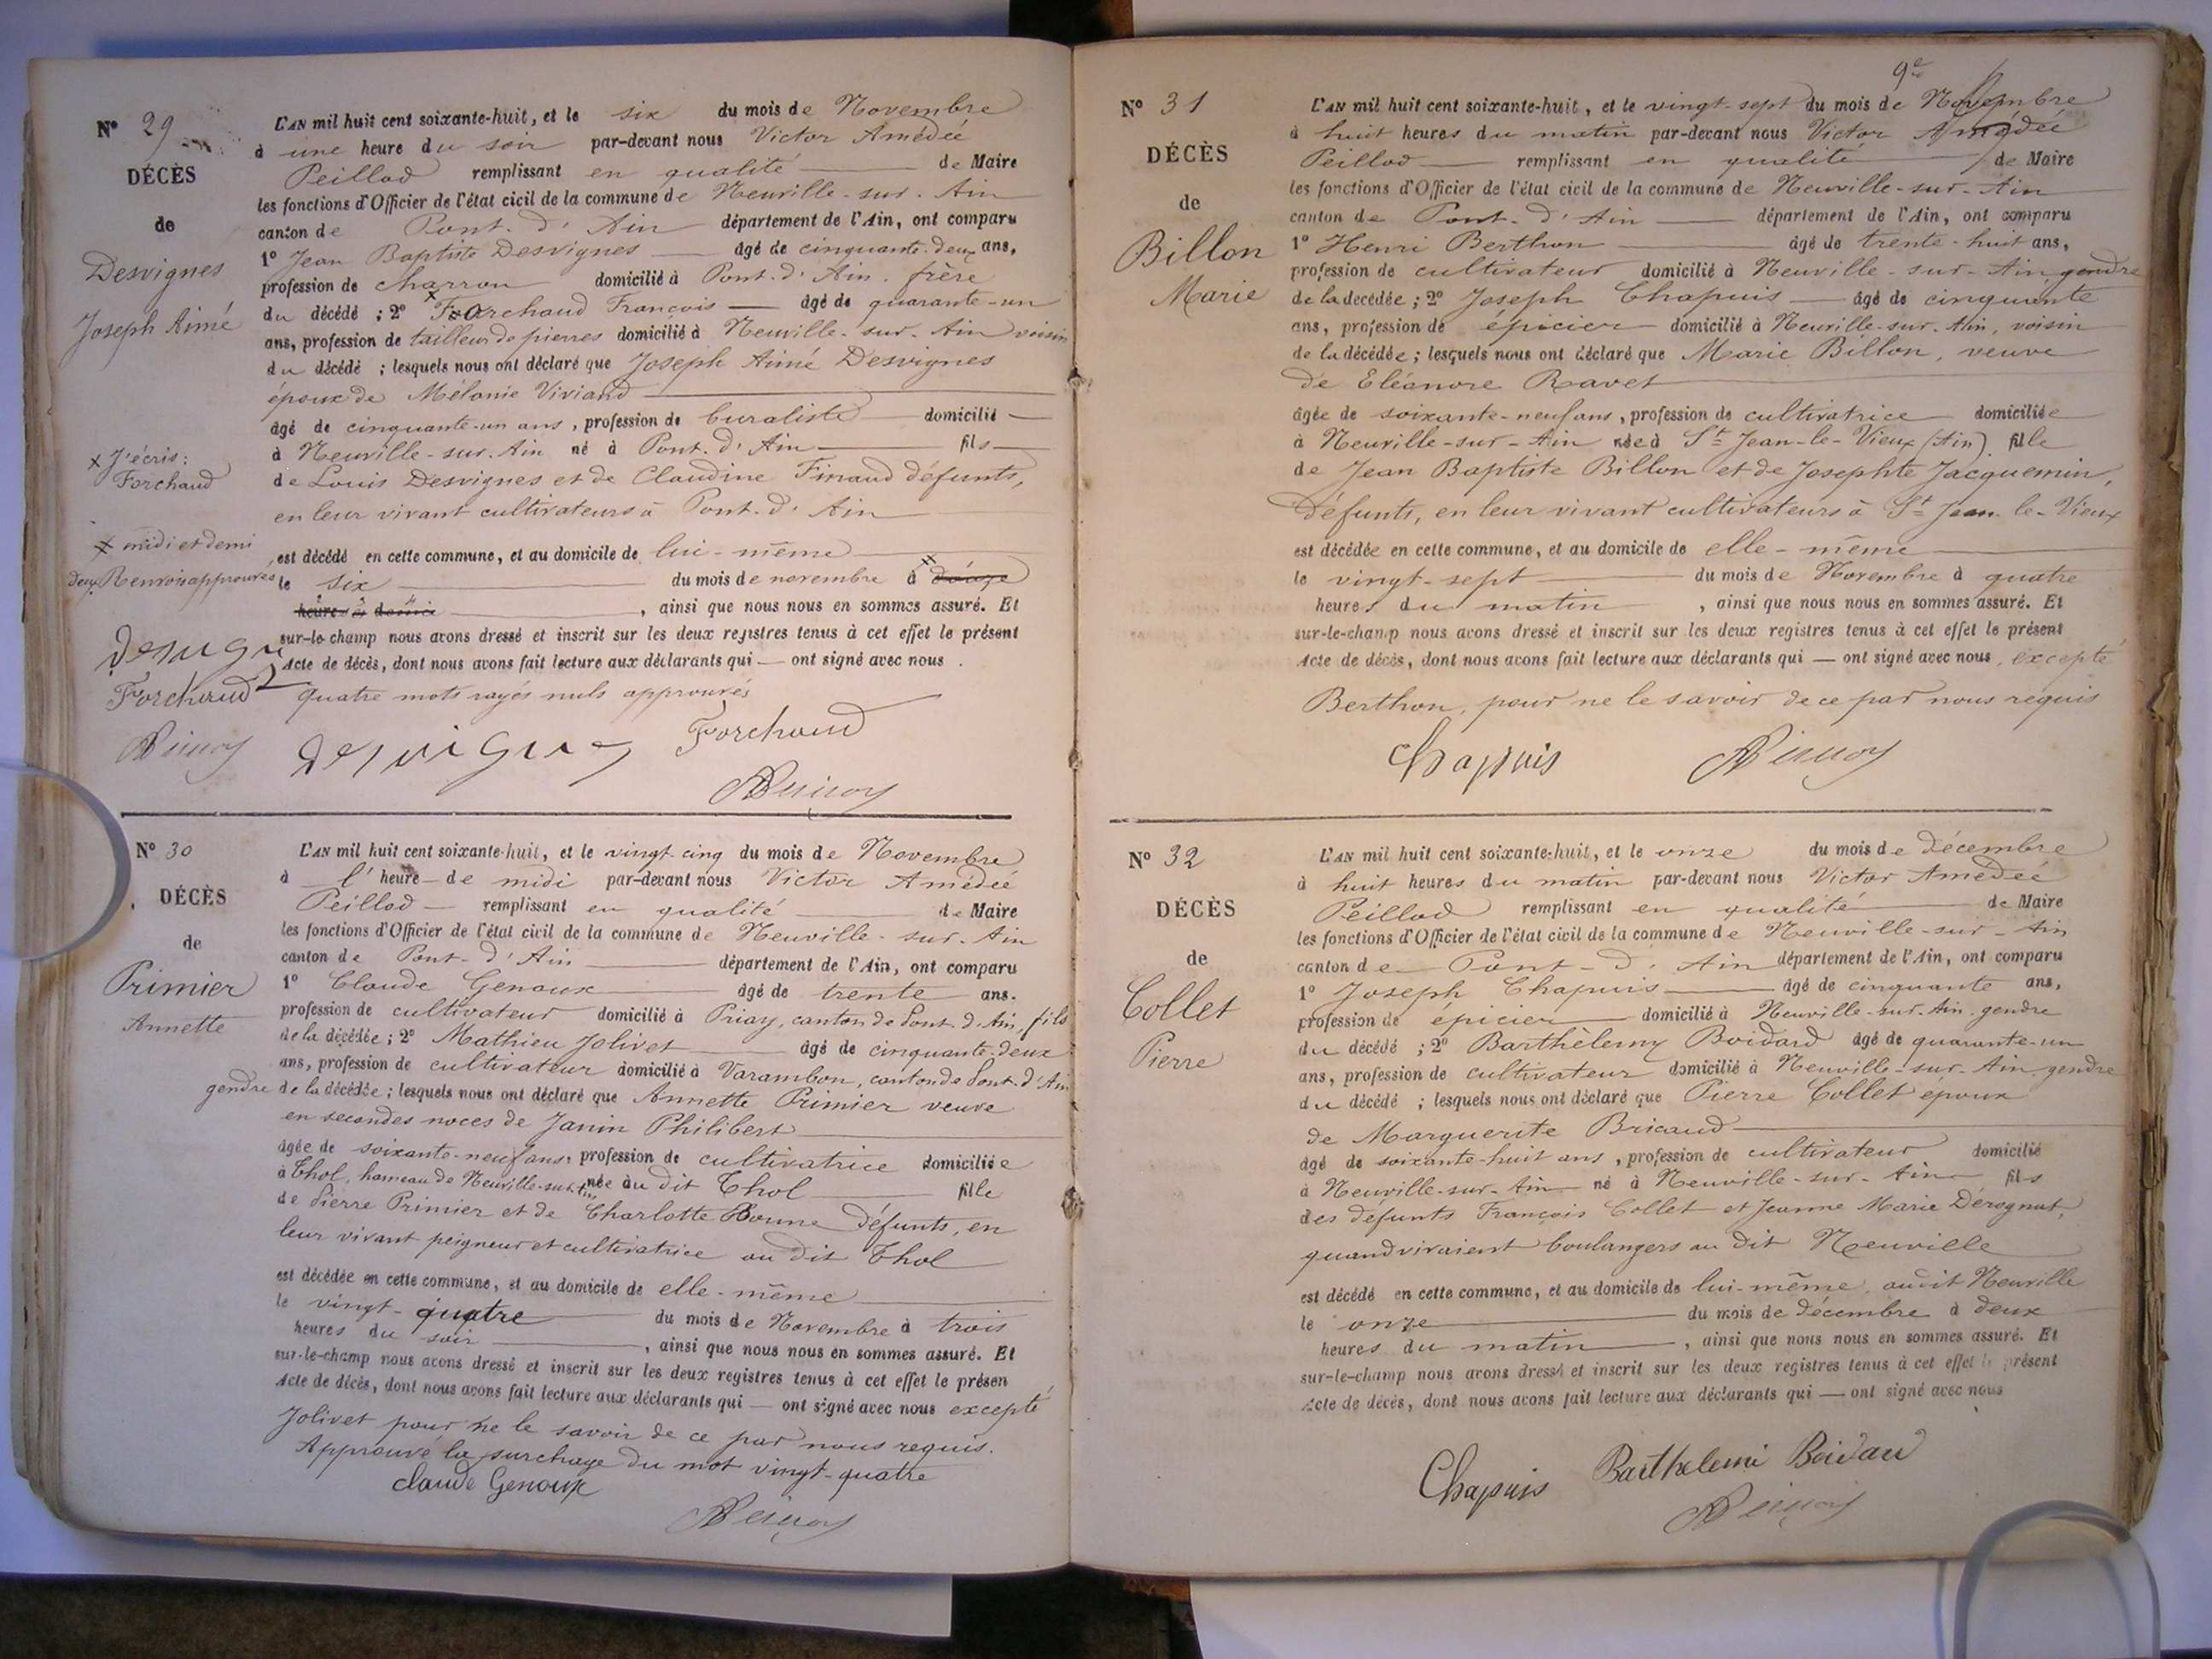 N° 29
DÉCÈS
de
Desvignes
Joseph Aimé
L'AN mil huit cent soixante-huit, et le six du mois de Novembre
à une heure du soir par-devant nous Victor Amédée
Peillod remplissant en qualité de Maire
les fonctions d'Officier de l'état civil de la commune de Neuville-sur-Ain
canton de Pont-d'Ain département de l'Ain, ont comparu
1° Jean Baptiste Desvignes âgé de cinquante-deux ans,
profession de charron domicilié à Pont-d'Ain. frère
du décédé ; 2° Forchaud François âgé de quarante-un
ans, profession de tailleur de pierres domicilié à Neuville-sur-Ain voisin
du décédé ; lesquels nous ont déclaré que Joseph Aimé Desvignes
époux de Mélanie Viviand
âgé de cinquante-un ans, profession de buraliste domicilié
à Neuville-sur-Ain né à Pont-d'Ain fils
de Louis Desvignes et de Claudine Finaud défunts,
en leur vivant cultivateurs à Pont-d'Ain
x J'écris:
Forchaud
x midi et demi
deux Renvois approuvés
est décédé en cette commune, et au domicile de lui-même
le six du mois de novembre à douze
heures et demie, ainsi que nous nous en sommes assuré. Et
sur-le-champ nous avons dressé et inscrit sur les deux registres tenus à cet effet le présent
Acte de décès, dont nous avons fait lecture aux déclarants qui — ont signé avec nous.
quatre mots rayés nuls approuvés
Forchaud
desvignes Forchaud
N° 30
DÉCÈS
de
Primier
Annette
L'AN mil huit cent soixante-huit, et le vingt-cinq du mois de Novembre
à l'heure de midi par-devant nous Victor Amédée
Peillod remplissant en qualité de Maire
les fonctions d'Officier de l'état civil de la commune de Neuville-sur-Ain
canton de Pont-d'Ain département de l'Ain, ont comparu
1° Claude Genoux âgé de trente ans.
profession de cultivateur domicilié à Priay, canton de Pont-d'Ain, fils
de la décédée ; 2° Mathieu Jolivet âgé de cinquante-deux
ans, profession de cultivateur domicilié à Varambon, canton de Pont-d'Ain
gendre de la décédée ; lesquels nous ont déclaré que Annette Primier veuve
en secondes noces de Janin Philibert
âgée de soixante-neuf ans, profession de cultivatrice domiciliée
à Thol, hameau de Neuville-sur-Ain née au dit Thol fille
de Pierre Primier et de Charlotte Bonne défunts, en
leur vivant peigneur et cultivatrice au dit Thol
est décédée en cette commune, et au domicile de elle-même
le vingt-quatre du mois de Novembre à trois
heures du soir, ainsi que nous nous en sommes assuré. Et
sur-le-champ nous avons dressé et inscrit sur les deux registres tenus à cet effet le présen
Acte de décès, dont nous avons fait lecture aux déclarants qui — ont signé avec nous excepté
Jolivet pour ne le savoir de ce par nous requis.
Approuvé la surchage du mot vingt-quatre
Claude Genoux
9e
N° 31
DÉCÈS
de
Billon
Marie
L'AN mil huit cent soixante-huit, et le vingt-sept du mois de Novembre
à huit heures du matin par-devant nous Victor Amédée
Peillod remplissant en qualité de Maire
les fonctions d'Officier de l'état civil de la commune de Neuville-sur-Ain
canton de Pont-d'Ain département de l'Ain, ont comparu
1° Henri Berthon âgé de trente-huit ans,
profession de cultivateur domicilié à Neuville-sur-Ain gendre
de la décédée ; 2° Joseph Chapuis âgé de cinquante
ans, profession de épicier domicilié à Neuville-sur-Ain, voisin
de la décédée ; lesquels nous ont déclaré que Marie Billon, veuve
de Eléonore Ravet
âgée de soixante-neuf ans, profession de cultivatrice domiciliée
à Neuville-sur-Ain née à St Jean-le-Vieux (Ain). fille
de Jean Baptiste Billon et de Josephte Jacquemin,
défunts, en leur vivant cultivateurs à St Jean-le-Vieux
est décédée en cette commune, et au domicile de elle-même
le vingt-sept du mois de Novembre à quatre
heures du matin, ainsi que nous nous en sommes assuré. Et
sur-le-champ nous avons dressé et inscrit sur les deux registres tenus à cet effet le présent
Acte de décès, dont nous avons fait lecture aux déclarants qui — ont signé avec nous, excepté
Berthon, pour ne le savoir de ce par nous requis
Chapuis
N° 32
DÉCÈS
de
Collet
Pierre
L'AN mil huit cent soixante-huit, et le onze du mois de décembre
à huit heures du matin par-devant nous Victor Amédée
Peillod remplissant en qualité de Maire
les fonctions d'Officier de l'état civil de la commune de Neuville-sur-Ain
canton de Pont-d'Ain département de l'Ain, ont comparu
1° Joseph Chapuis âgé de cinquante ans,
profession de épicier domicilié à Neuville-sur-Ain gendre
du décédé ; 2° Barthèlemy Boidard âgé de quarante-un
ans, profession de cultivateur domicilié à Neuville-sur-Ain gendre
du décédé ; lesquels nous ont déclaré que Pierre Collet époux
de Marguerite Bricaud
âgé de soixante-huit ans, profession de cultivateur domicilié
à Neuville-sur-Ain né à Neuville-sur-Ain fils
des défunts François Collet et Jeanne Marie Dérognat,
quand vivaient boulangers au dit Neuville
est décédé en cette commune, et au domicile de lui-même, audit Neuville
le onze du mois de décembre à deux
heures du matin, ainsi que nous nous en sommes assuré. Et
sur-le-champ nous avons dressé et inscrit sur les deux registres tenus à cet effet le présent
Acte de décès, dont nous avons fait lecture aux déclarants qui — ont signé avec nous
Chapuis Barthelemi Boidau